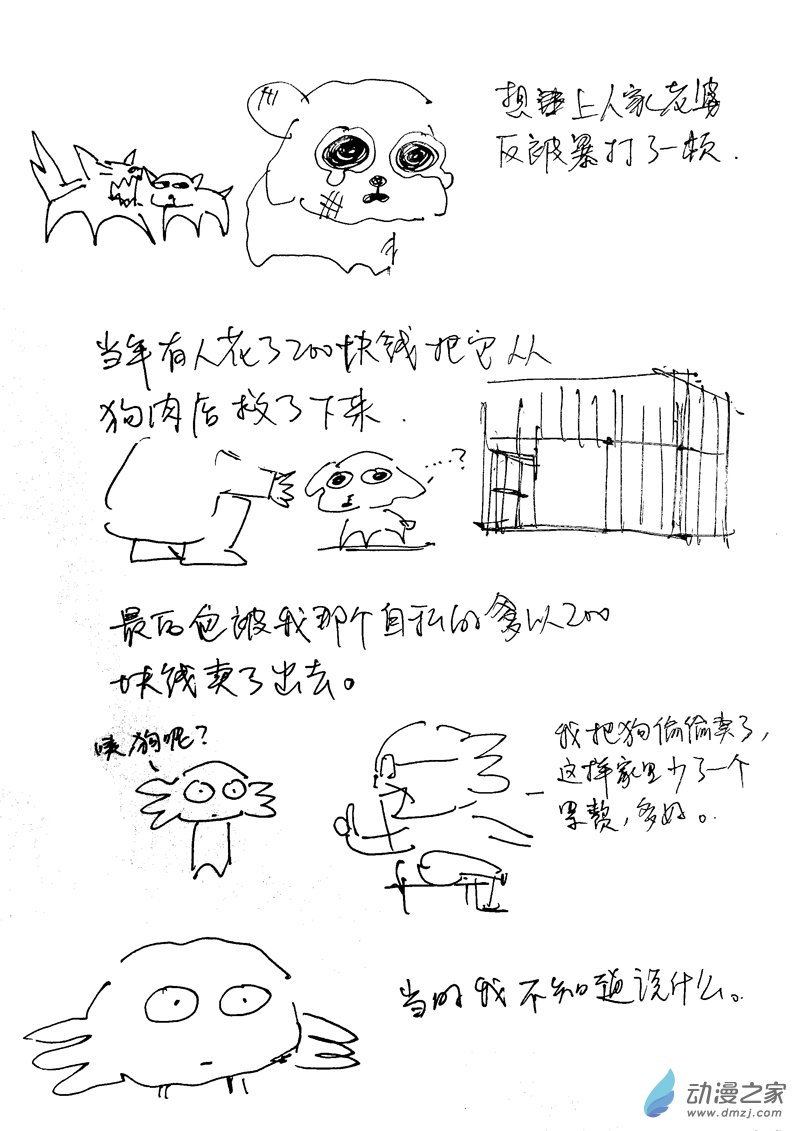 想上人家老婆
反被暴打了一顿.
当年有人花了200块钱把它从
狗肉店救了下来.
?
最后也被我那个自私的爹以200
块钱卖了出去。
咦狗呢?
我把狗偷偷卖了,
这样家里少了一个
累赘,多好。
当时我不知道说什么。
动漫之家
www.dmzj.com